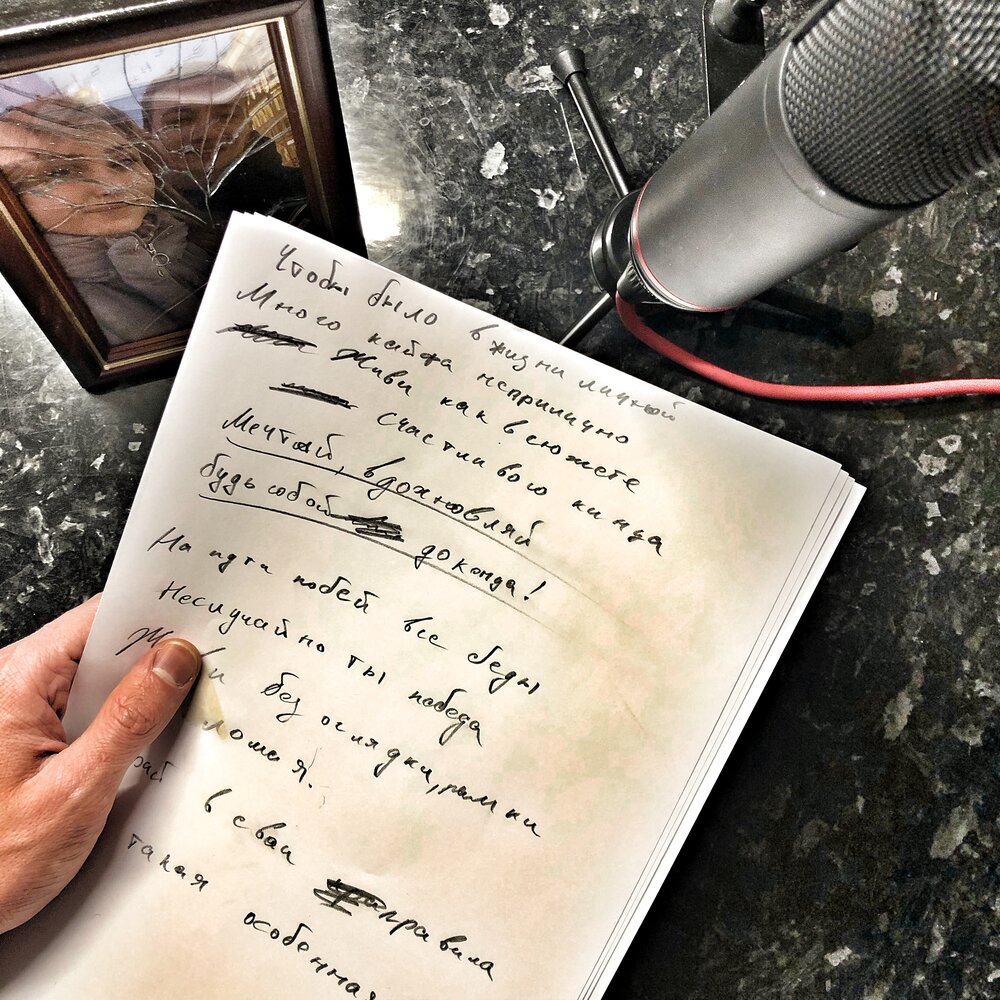 Чтобы было в жизни личной
Много кайфа неприлично
Живи как в сюжете
счастливого кинца
Мечтай, вдохновляй
будь собой до конца!
На пути побей все беды
Неслучайно ты победа
Живи без оглядки, рамки
ломая.
в свои правила
такая особенная